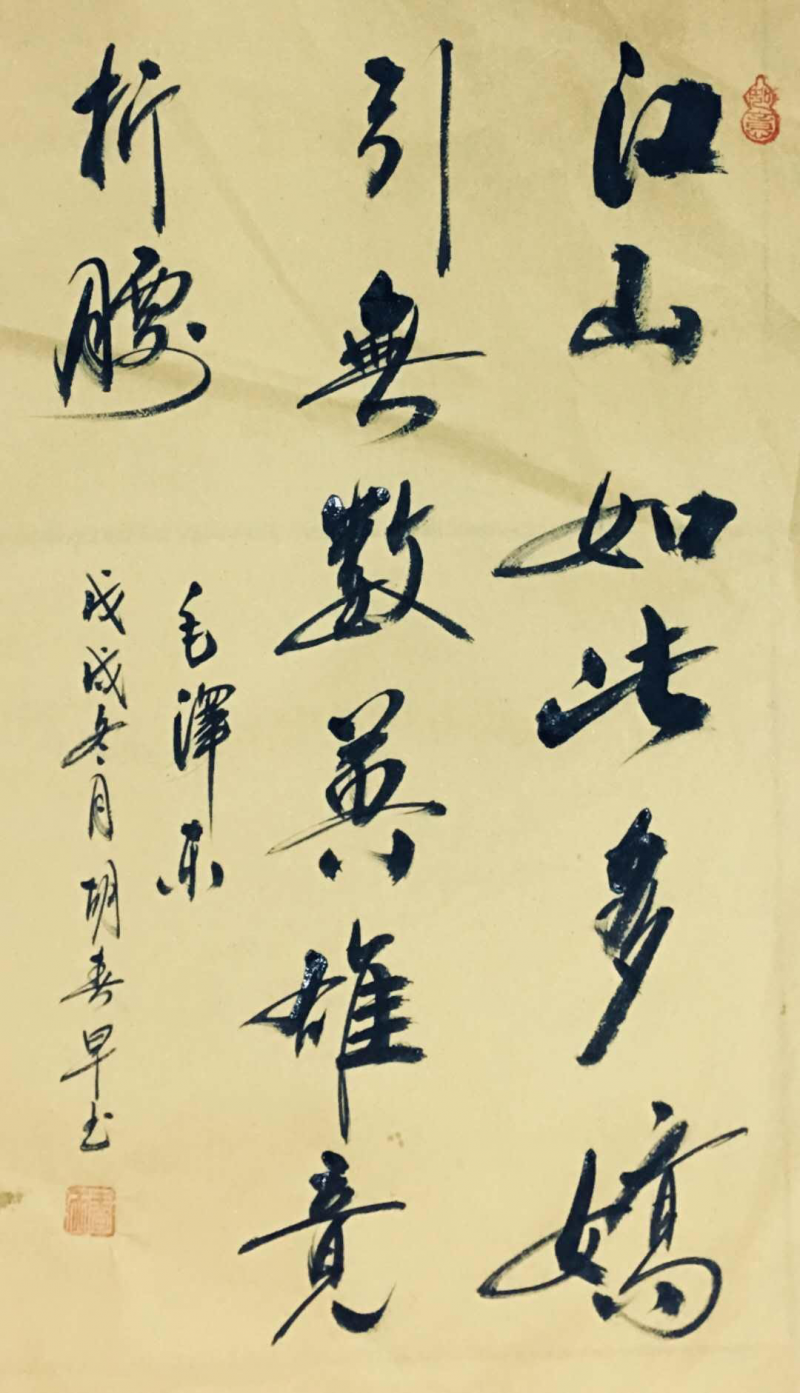 江山如此多嬌
引無數英雄竟
折腰
毛澤东
戊戌冬月胡春早书